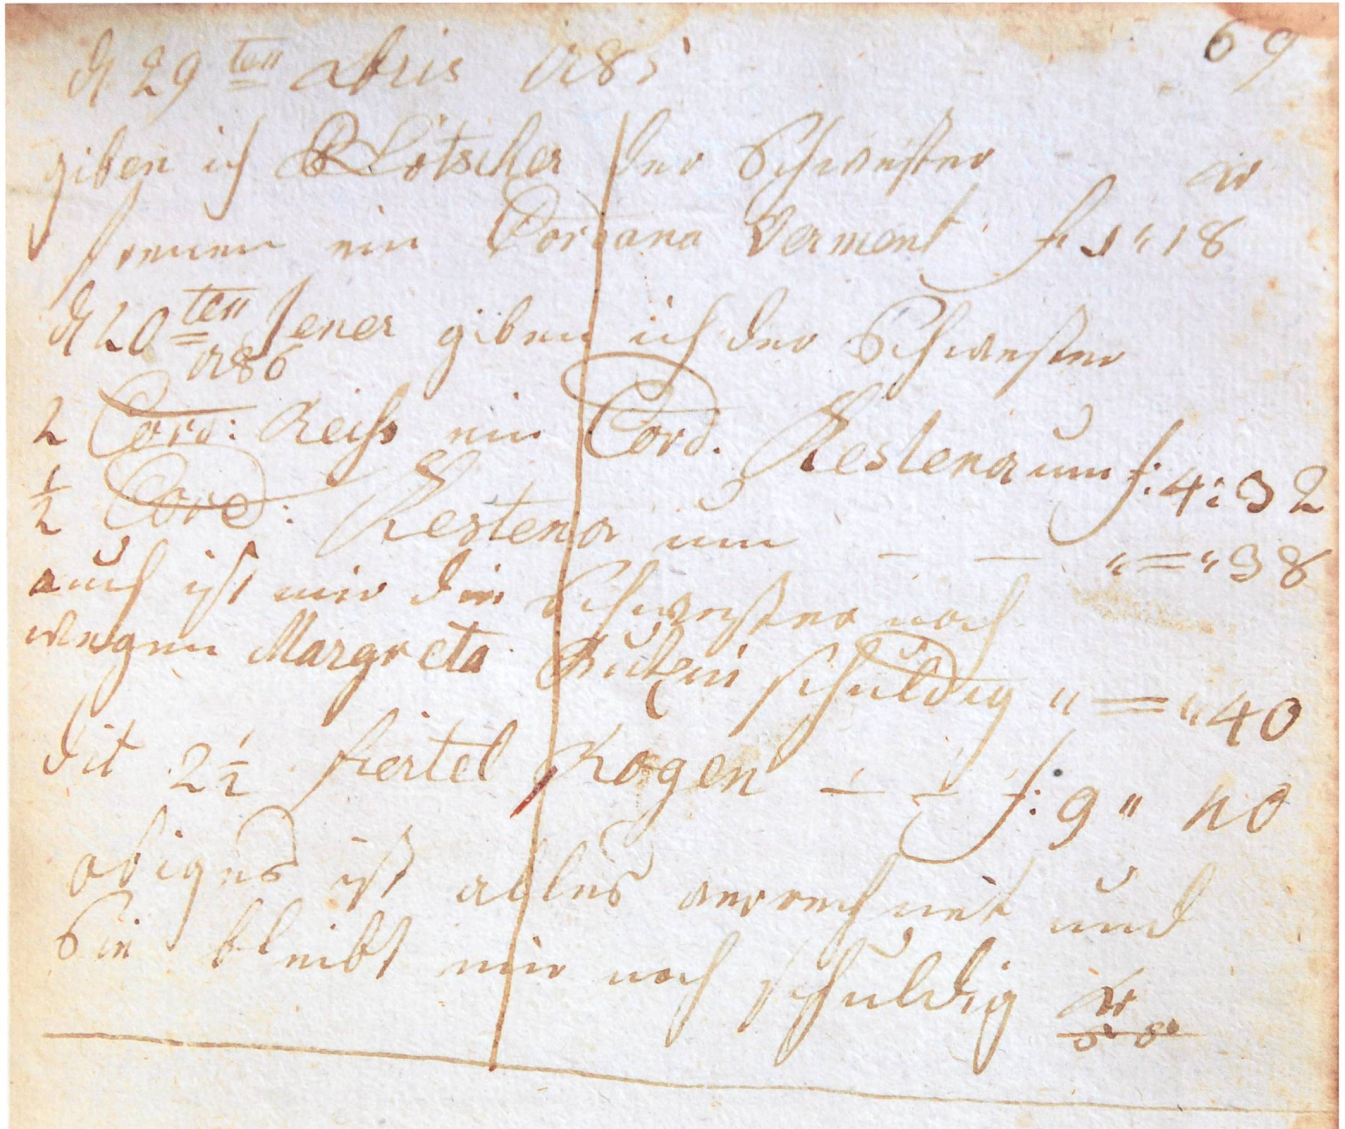 69
dl 29 ten Abris 1785
giben ich B Lötscher der Schwester
ein Cordana Verment f. 1 " 18
dl 20 ten Jener giben ich der Schwester
1786
2 Cord: Reiss ein Cord. Kestena um f: 4: 32
1/2 Cord: Kestena um — — " = " 38
auch ist mir die Schwester noch
wegen Margreta schuldig " = " 40
dit 2 1/2 fiertel Rogen — — f: 9 " 40
obiges ist alles verrechnet und
Sie bleibt mir noch schuldig